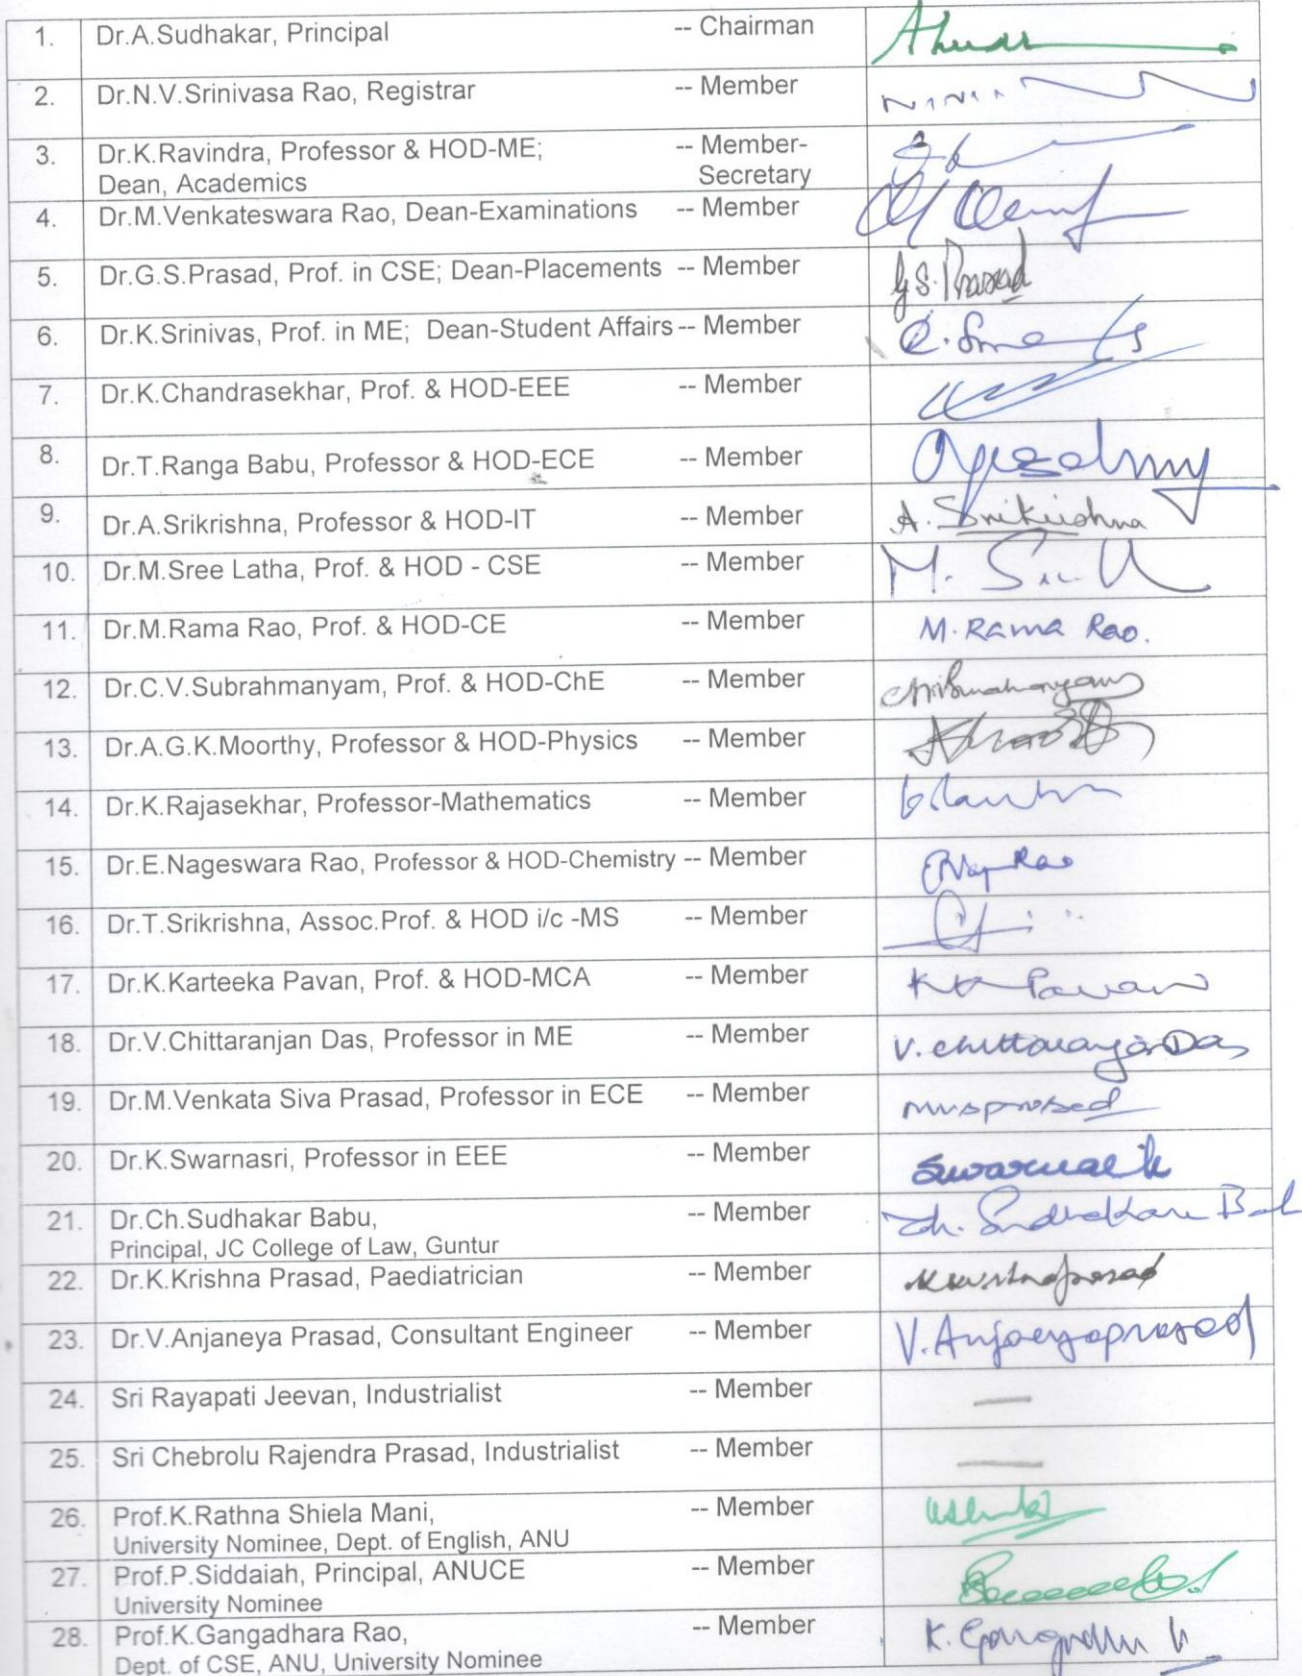 1. Dr.A.Sudhakar, Principal -- Chairman
2. Dr.N.V.Srinivasa Rao, Registrar -- Member
3. Dr.K.Ravindra, Professor & HOD-ME; -- Member-
Dean, Academics Secretary
4. Dr.M.Venkateswara Rao, Dean-Examinations -- Member
5. Dr.G.S.Prasad, Prof. in CSE; Dean-Placements -- Member G.S.Prasad
6. Dr.K.Srinivas, Prof. in ME; Dean-Student Affairs -- Member
7. Dr.K.Chandrasekhar, Prof. & HOD-EEE -- Member
8. Dr.T.Ranga Babu, Professor & HOD-ECE -- Member
9. Dr.A.Srikrishna, Professor & HOD-IT -- Member A. Srikrishna
10. Dr.M.Sree Latha, Prof. & HOD - CSE -- Member
11. Dr.M.Rama Rao, Prof. & HOD-CE -- Member M. Rama Rao.
12. Dr.C.V.Subrahmanyam, Prof. & HOD-ChE -- Member
13. Dr.A.G.K.Moorthy, Professor & HOD-Physics -- Member
14. Dr.K.Rajasekhar, Professor-Mathematics -- Member
15. Dr.E.Nageswara Rao, Professor & HOD-Chemistry -- Member
16. Dr.T.Srikrishna, Assoc.Prof. & HOD i/c -MS -- Member
17. Dr.K.Karteeka Pavan, Prof. & HOD-MCA -- Member KK Pavan
18. Dr.V.Chittaranjan Das, Professor in ME -- Member V. Chittaranjan Das
19. Dr.M.Venkata Siva Prasad, Professor in ECE -- Member mvsprasad
20. Dr.K.Swarnasri, Professor in EEE -- Member
21. Dr.Ch.Sudhakar Babu, -- Member Ch. Sudhakar Bab
Principal, JC College of Law, Guntur
22. Dr.K.Krishna Prasad, Paediatrician -- Member Krishnaprasad
23. Dr.V.Anjaneya Prasad, Consultant Engineer -- Member V. Anjaeyaprasad
24. Sri Rayapati Jeevan, Industrialist -- Member —
25. Sri Chebrolu Rajendra Prasad, Industrialist -- Member —
26. Prof.K.Rathna Shiela Mani, -- Member
University Nominee, Dept. of English, ANU
27. Prof.P.Siddaiah, Principal, ANUCE -- Member
University Nominee
28. Prof.K.Gangadhara Rao, -- Member
Dept. of CSE, ANU, University Nominee